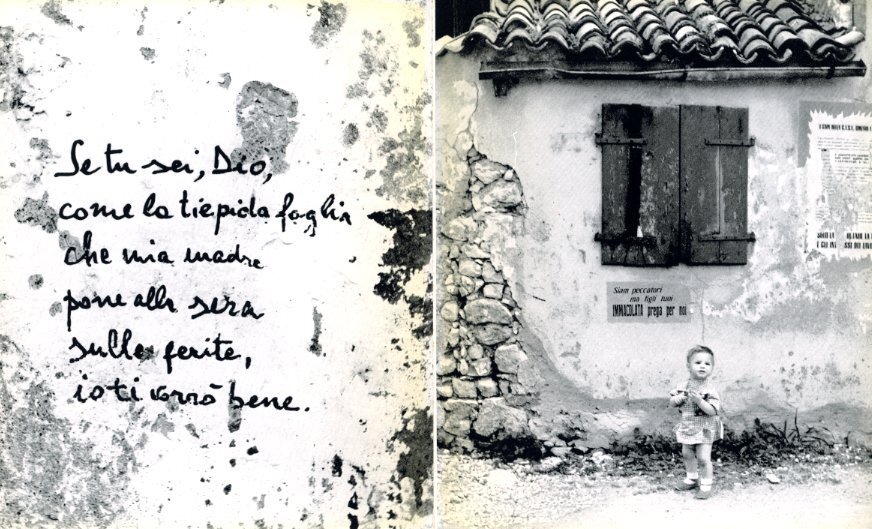 Se tu sei, Dio,
come la tiepida foglia
che mia madre
pone alla sera
sulle ferite,
io ti vorrò bene.
Siam peccatori
ma figli tuoi
IMMACOLATA prega per noi